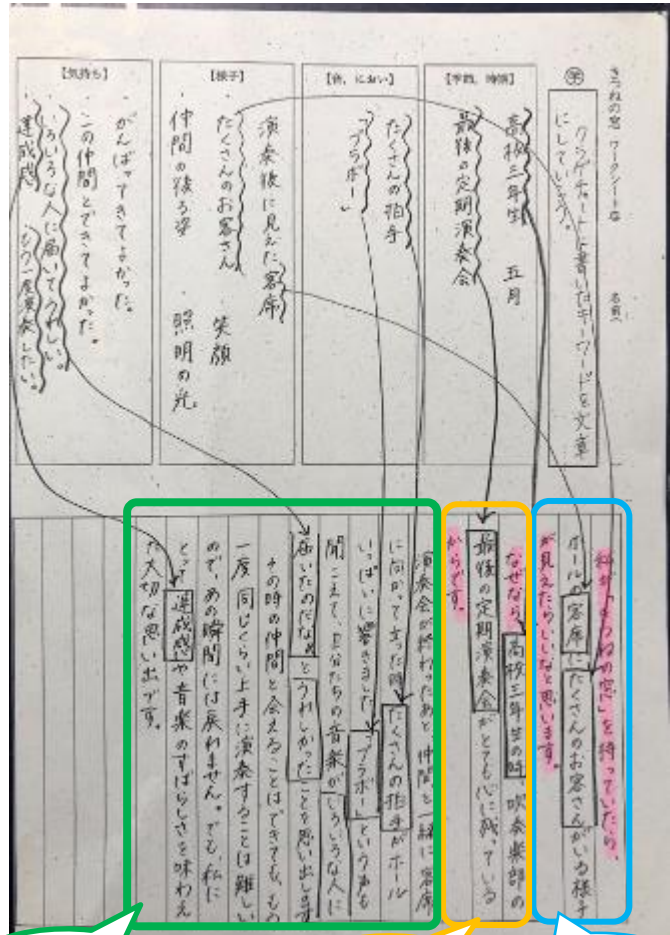 きつねの窓 ワークシート⑤
名前
㋻ クラゲチャートに書いたキーワードを文章
にしていこう。
【季節、時間】
高校三年生 五月
最後の定期演奏会
【音、におい】
たくさんの拍手
「ブラボー」
【様子】
演奏後に見えた客席
たくさんのお客さん 笑顔
仲間の後ろ姿 照明の光
【気持ち】
・がんばってきてよかった。
・この仲間とできてよかった。
・いろいろな人に届いてうれしい。
・達成感 もう一度演奏したい。
私が「きつねの窓」を持っていたら、
ホールの客席にたくさんのお客さんがいる様子
が見えたらいいなと思います。
なぜなら、高校三年生の時、吹奏楽部の
最後の定期演奏会がとても心に残っている
からです。
演奏会が終わったあと、仲間と一緒に客席
に向かって立った時、たくさんの拍手がホール
いっぱいに響きました。「ブラボー」という声も
聞こえて、自分たちの音楽がいろいろな人に
届いたのだなぁとうれしかったことを思い出します。
その時の仲間と会えることはできても、もう
一度同じくらい上手に演奏することは難しい
ので、あの瞬間には戻れません。でも、私に
とって達成感や音楽のすばらしさを味わえ
た大切な思い出です。